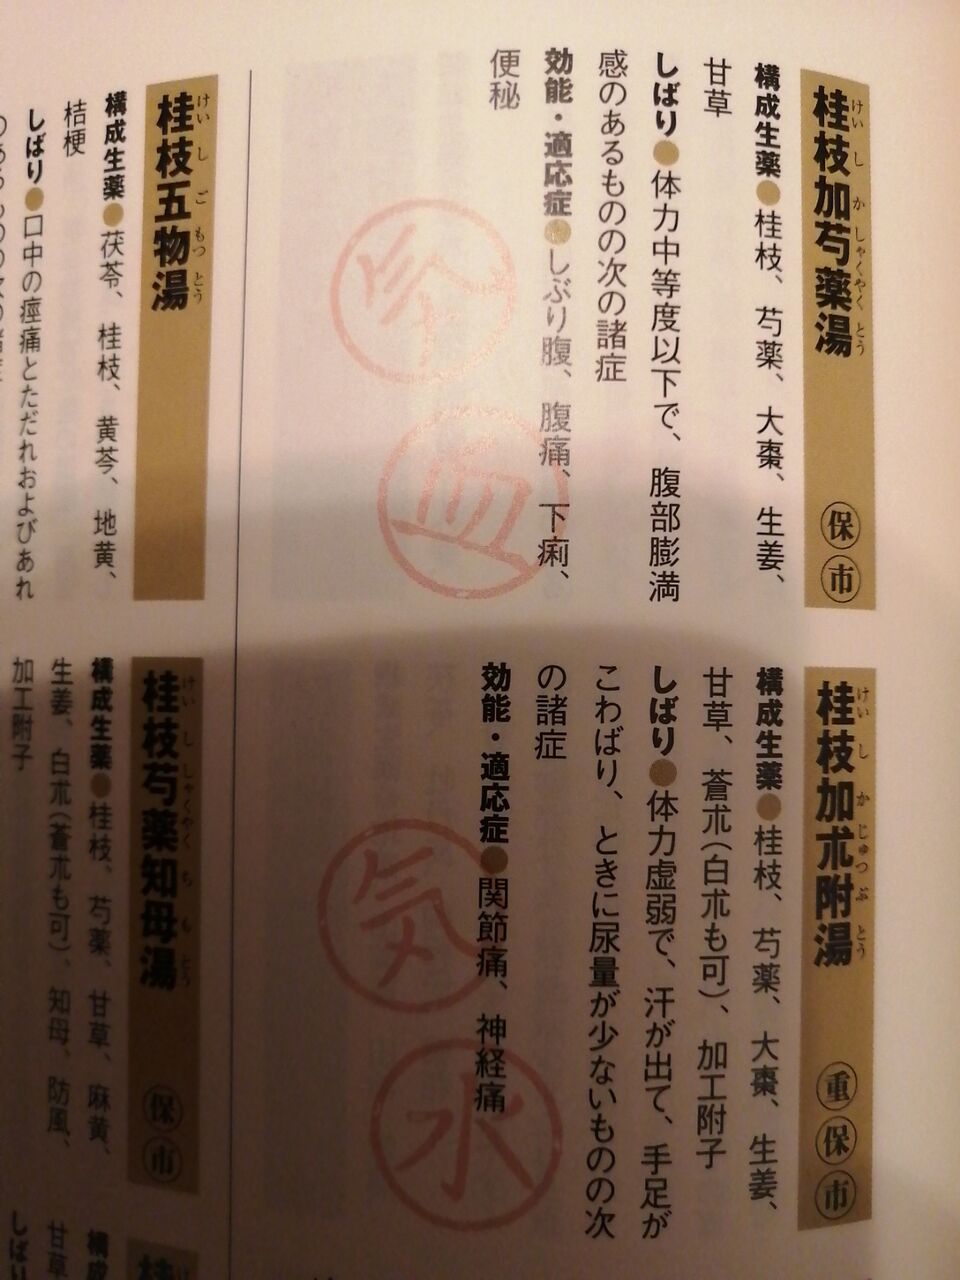 桂枝加芍薬湯 保 市
けいしかしゃくやくとう
構成生薬●桂枝、芍薬、大棗、生姜、
甘草
しばり●体力中等度以下で、腹部膨満
感のあるものの次の諸症
効能・適応症●しぶり腹、腹痛、下痢、
便秘
血
桂枝加朮附湯 重 保 市
けいしかじゅつぶとう
構成生薬●桂枝、芍薬、大棗、生姜、
甘草、蒼朮(白朮も可)、加工附子
しばり●体力虚弱で、汗が出て、手足が
こわばり、ときに尿量が少ないものの次
の諸症
効能・適応症●関節痛、神経痛
気
水
桂枝五物湯
けいしごもつとう
構成生薬●茯苓、桂枝、黄芩、地黄、
桔梗
しばり●口中の痙痛とただれおよびあれ
桂枝芍薬知母湯 保 市
けいししゃくやくちもとう
構成生薬●桂枝、芍薬、甘草、麻黄、
生姜、白朮(蒼朮も可)、知母、防風、
加工附子
桂
構成
甘草
しばり